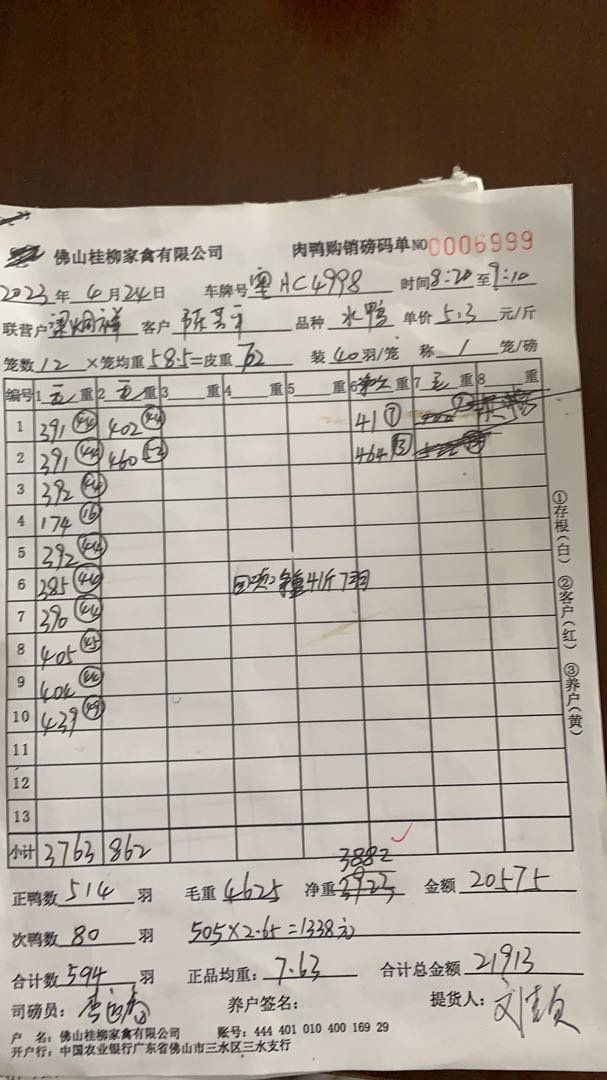 佛山桂柳家禽有限公司 肉鸭购销磅码单 NO 0006999
2023年 4月 24日 车牌号 粤HC4998 时间 8:20 至 9:10
联营户 客户 品种 水鸭 单价 5.3 元/斤
笼数 12 ×笼均重 58.5 =皮重 702 装 40 羽/笼 称 1 笼/磅
编号 1 重 2 重 3 重 4 重 5 重 6 重 7 重 8 重
1 391 (44) 402 (44) 41 (7)
2 391 (44) 460 464
3 392 (44)
4 174 (16)
5 392 (44)
6 385 (44) 41斤7羽
7 390 (44)
8 405 (45)
9 404 (44)
10 439 (49)
11
12
13
小计 3763 862
3882
正鸭数 514 羽 毛重 4625 净重 3923 金额 20575
次鸭数 80 羽 505×2.65=1338元
合计数 594 羽 正品均重: 7.63 合计总金额 21913
司磅员: 养户签名: 提货人:
户 名: 佛山桂柳家禽有限公司 账号: 444 401 010 400 169 29
开户行: 中国农业银行广东省佛山市三水区三水支行
①存根(白) ②客户(红) ③养户(黄)